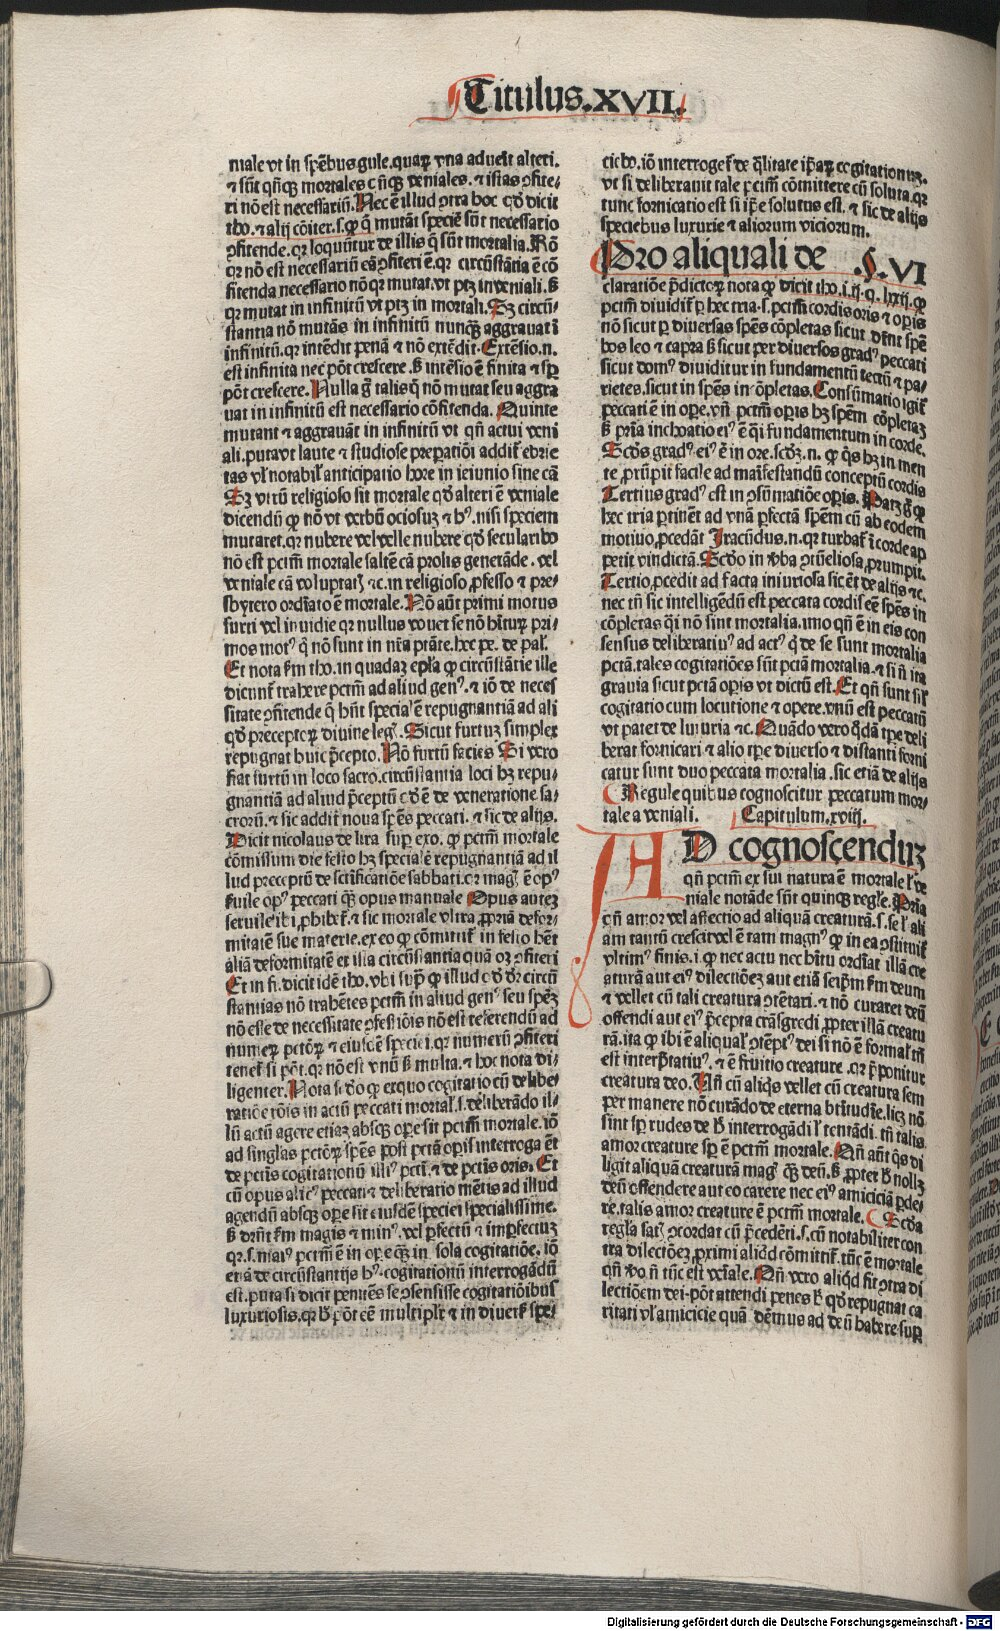 Titulus.XVII.
niale vt in spēbus gule.quaꝝ vna aduēit alteri.
⁊ sūt qñꝗ mortales ⁊ qñꝗ veniales.⁊ istas ꝯfite-
ri nō est necessariū.Nec ē illud ꝯtra hoc qđ dicit
tho.⁊ alij cōiter.s.ꝙ q̄ mutāt speciē sūt necessario
ꝯfitende.qꝛ loquūtur de illis q̄ sūt mortalia.Rō
qꝛ nō est necessariū eā ꝯfiteri ē.qꝛ circūstātia ē cō
fitenda necessario nō qꝛ mutat.vt ptꝫ in veniali.ß
qꝛ mutat in infinitū vt ptꝫ in mortali.Sꝫ circū-
stantia nō mutās in infinitū nunꝗ aggrauat ī
infinitū.qꝛ intēdit penā ⁊ nō extēdit.Extēsio.n.
est infinita nec pōt crescere.ß intēsio ē finita ⁊ sꝑ
pōt crescere.Nulla g̃ talis q̄ nō mutat seu aggra
uat in infinitū est necessario cōfitenda.Quinte
mutant ⁊ aggrauāt in infinitū vt qñ actui veni
ali.puta vt laute ⁊ studiose preparatiōi addit̄ ebrie
tas vl̓ notabil̓ anticipatio hore in ieiunio sine cā
Sꝫ vtrū religioso sit mortale qđ alteri ē veniale
dicendū ꝙ nō vt verbū ociosuꝫ ⁊ hꝰ.nisi speciem
mutaret.qꝛ nubere vel velle nubere qđ seculari vo
nō est pctm̄ mortale saltē cā prolis generāde.vel
veniale cā voluptatꝭ ⁊c.in religioso ꝓfesso ⁊ pre-
sbytero ordīato ē mortale.Nō aūt primi motus
surti vel inuidie qꝛ nullus vouet se nō hr̄tur pri-
mos motꝰ q̄ nō sunt in nr̄a ptāte.hec pe. de pal̓.
Et nota ßm tho.in quadaꝫ epl̓a ꝙ circūstātie ille
dicunt̄ trahere pctm̄ ad aliud genꝰ.⁊ iō de neces
sitate ꝯfitende q̄ hn̄t special̓ē repugnantiā ad ali
qđ preceptoꝝ diuine legꝭ.Sicut furtuꝫ simplex
repugnat huic p̄cepto.Nō furtū facies Si vero
fiat furtū in loco sacro.circūstantia loci hꝫ repu-
gnantiā ad aliud p̄ceptū qđ ē de veneratione sa-
croꝝ.⁊ sic addit̄ noua spēs peccati.⁊ sic de alijs.
Dicit nicolaus de lira suꝑ exo. ꝙ pctm̄ mortale
cōmissum die festo hꝫ specialē repugnantiā ad il
lud preceptū de sctificatiōe sabbati.qꝛ magꝭ ē opꝰ
ßuile opꝰ peccati ꝗ opus manuale Opus auteꝫ
seruile ibi ꝓhibet̄.⁊ sic mortale vltra ꝓpriā defor-
mitatē sue materie.ex eo ꝙ cōmittit̄ in festo hēt
aliā deformitatē et illa circūstantia quā oꝫ ꝯfiteri
Et in fi.dicit idē tho.vbi suꝑ ꝙ illud qđ dr̄ circū
stantias nō trahētes pctm̄ in aliud genꝰ seu spēꝫ
nō esse de necessitate ꝯfessiōis nō est referendū ad
numeꝝ pctōꝝ ⁊ eiusdē speciei.qꝛ numerū ꝯfiteri
tenet̄ si pōt.qꝛ nō est vnū ß multa.⁊ hoc nota di-
ligenter.Nota si đo ꝙ ex quo cogitatio cū delibe-
ratiōe rōis in actū peccati mortal̓.s.deliberādo il-
lū actū agere etiaꝫ absꝗ opere sit pctm̄ mortale.iō
ad singlas pctōꝝ spēs post pctā opis interroga ēt
de pctīs cogitationū illiꝰ pcti.⁊ de pctīs oris. Et
cū opus alicꝰ peccati ⁊ deliberatio mētis ad illud
agendū absꝗ ope sit eiusdē speciei specialissime.
ß drn̄t ßm magis ⁊ minꝰ.vel ꝑfectū ⁊ imꝑfectuꝫ
qꝛ.s.maiꝰ pctm̄ ē in ope ꝗ in sola cogitatiōe.iō
etiā de circūstantijs hꝰ.cogitationū interrogādū
est.puta si dicit penitēs se ꝯsensisse cogitatiōibus
luxuriosis.qꝛ ß pōt eē multiplr̄ ⁊ in diuersꝭ spe-
ciebo.iō interroget̄ de q̄litate ip̄aꝝ cogitationuꝫ.
vt si deliberauit tale pctm̄ cōmittere cū soluta.qꝛ
tunc fornicatio est si ip̄e solutus est.⁊ sic de alijs
speciebus luxurie ⁊ aliorum viciorum.
Pro aliquali de .§.VI
claratiōe p̄dictoꝝ nota ꝙ dicit tho.i.ij.q.lxxij.ꝙ
pctm̄ diuidit̄ ꝑ hec tria.s.pctm̄ cordis oris ⁊ oꝑis
nō sicut ꝑ diuersas spēs cōpletas sicut drn̄t spē
bos leo ⁊ capra ß sicut per diuersos gradꝰ peccati
sicut domꝰ diuiditur in fundamentū tectū ⁊ pa-
rietes.sicut in spēs incōpletas.Consūmatio igit̄
peccati ē in oꝑe.vn̄ pctm̄ oꝑis hꝫ spēm cōpletaꝫ
ß pria inchoatio eiꝰ ē q̄i fundamentum in corde.
Scđs gradꝰ eiꝰ ē in ore.scđꝫ.n. ꝙ q̄s hꝫ in men
te ꝓrūpit facile ad maīfestandū conceptū cordis
Tertius gradꝰ est in ꝯsūmatiōe oꝑis. Patꝫ g̃ ꝙ
hec tria ꝑtinēt ad vnā ꝑfectā spēm cū ab eodem
motiuo ꝓcedāt Iracūdus.n.qꝛ turbat̄ ī corde ap
petit vindictā.Scđo in v̓ba ꝯtūeliosa ꝓrumpit.
Tertio ꝓcedit ad facta iniuriosa sic ēt de alijs ⁊c.
nec tn̄ sic intelligēdū est peccata cordis eē spēs in
cōpletas q̄i nō sint mortalia.imo qñ ē in eis con
sensus deliberatiuꝰ ad actꝰ q̄ de se sunt mortalia
pctā.tales cogitatiōes sūt pctā mortalia.⁊ si n̄ ita
grauia sicut pctā oꝑis vt dictū est.Et qñ sunt sil̓
cogitatio cum locutione ⁊ opere.vnū est peccatū
vt patet de luxuria ⁊c.Quādo vero q̄dā tp̄e deli
berat fornicari ⁊ alio tp̄e diuerso ⁊ distanti forni
catur sunt duo peccata mortalia.sic etiā de alijs
Regule quibus cognoscitur peccatum mor
tale a veniali. Capitulum.xviij.
AD cognoscenduꝫ
qñ pctm̄ ex sui natura ē mortale l̓ ve
niale notāde sūt quinꝗ regl̓e.Pria
qñ amor vel affectio ad aliquā creaturā.s.se l̓ ali
am tantū crescit vel ē tam magnꝰ ꝙ in ea ꝯstituit̄
vltimꝰ finis.i.ꝙ nec actu nec hītu ordīat illā cre
aturā aut eiꝰ dilectiōeꝫ aut etiā seip̄m ßm deum
⁊ vellet cū tali creatura ꝯtētari.⁊ nō curaret deū
offendi aut eiꝰ p̄cepta trāsgredi ꝓpter illā creatu
rā.ita ꝙ ibi ē aliqual̓ ꝯtēptꝰ dei si nō ē formal̓ tn̄
est interp̄tatiuꝰ.⁊ ē fruitio creature.qꝛ p̄ponitur
creatura deo.Un̄ cū aliq̄s vellet cū creatura sem
per manere nō curādo de eterna btītudīe.licꝫ nō
sint sꝑ rudes de ß interrogādi l̓ tentādi.tn̄ talis
amor creature sꝑ ē pctm̄ mortale.Qn̄ aūt q̄s di
ligit aliquā creaturā magꝭ ꝗ deū.ß ꝓpter ß nolꝫ
deū offendere aut eo carere nec eiꝰ amiciciā ꝑde-
re.talis amor creature ē pctm̄ mortale. Scđa
regl̓a satꝭ ꝯcordat cū p̄cedēti.s.cū notabiliter con
tra dilectiōeꝫ ꝓximi aliq̄d cōmittit̄.tūc ē mortale
qñ v̓o n̄ tūc est ve̓iale.Qn̄ vero aliq̄d fit ꝯtra di
lectiōem dei.pōt attendi penes ß qđ repugnat ca
ritati vl̓ amicicie quā dēmus ad deū habere suꝑ